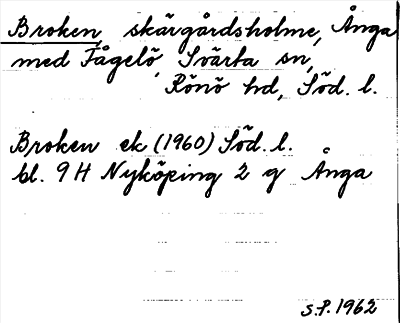 Broken, skärgårdsholme, Ånga
med Fågelö, Svärta sn,
Rönö hd, Söd. l.
Broken ek (1960) Söd. l.
bl. 9 H Nyköping 2 g Ånga
S.P. 1962